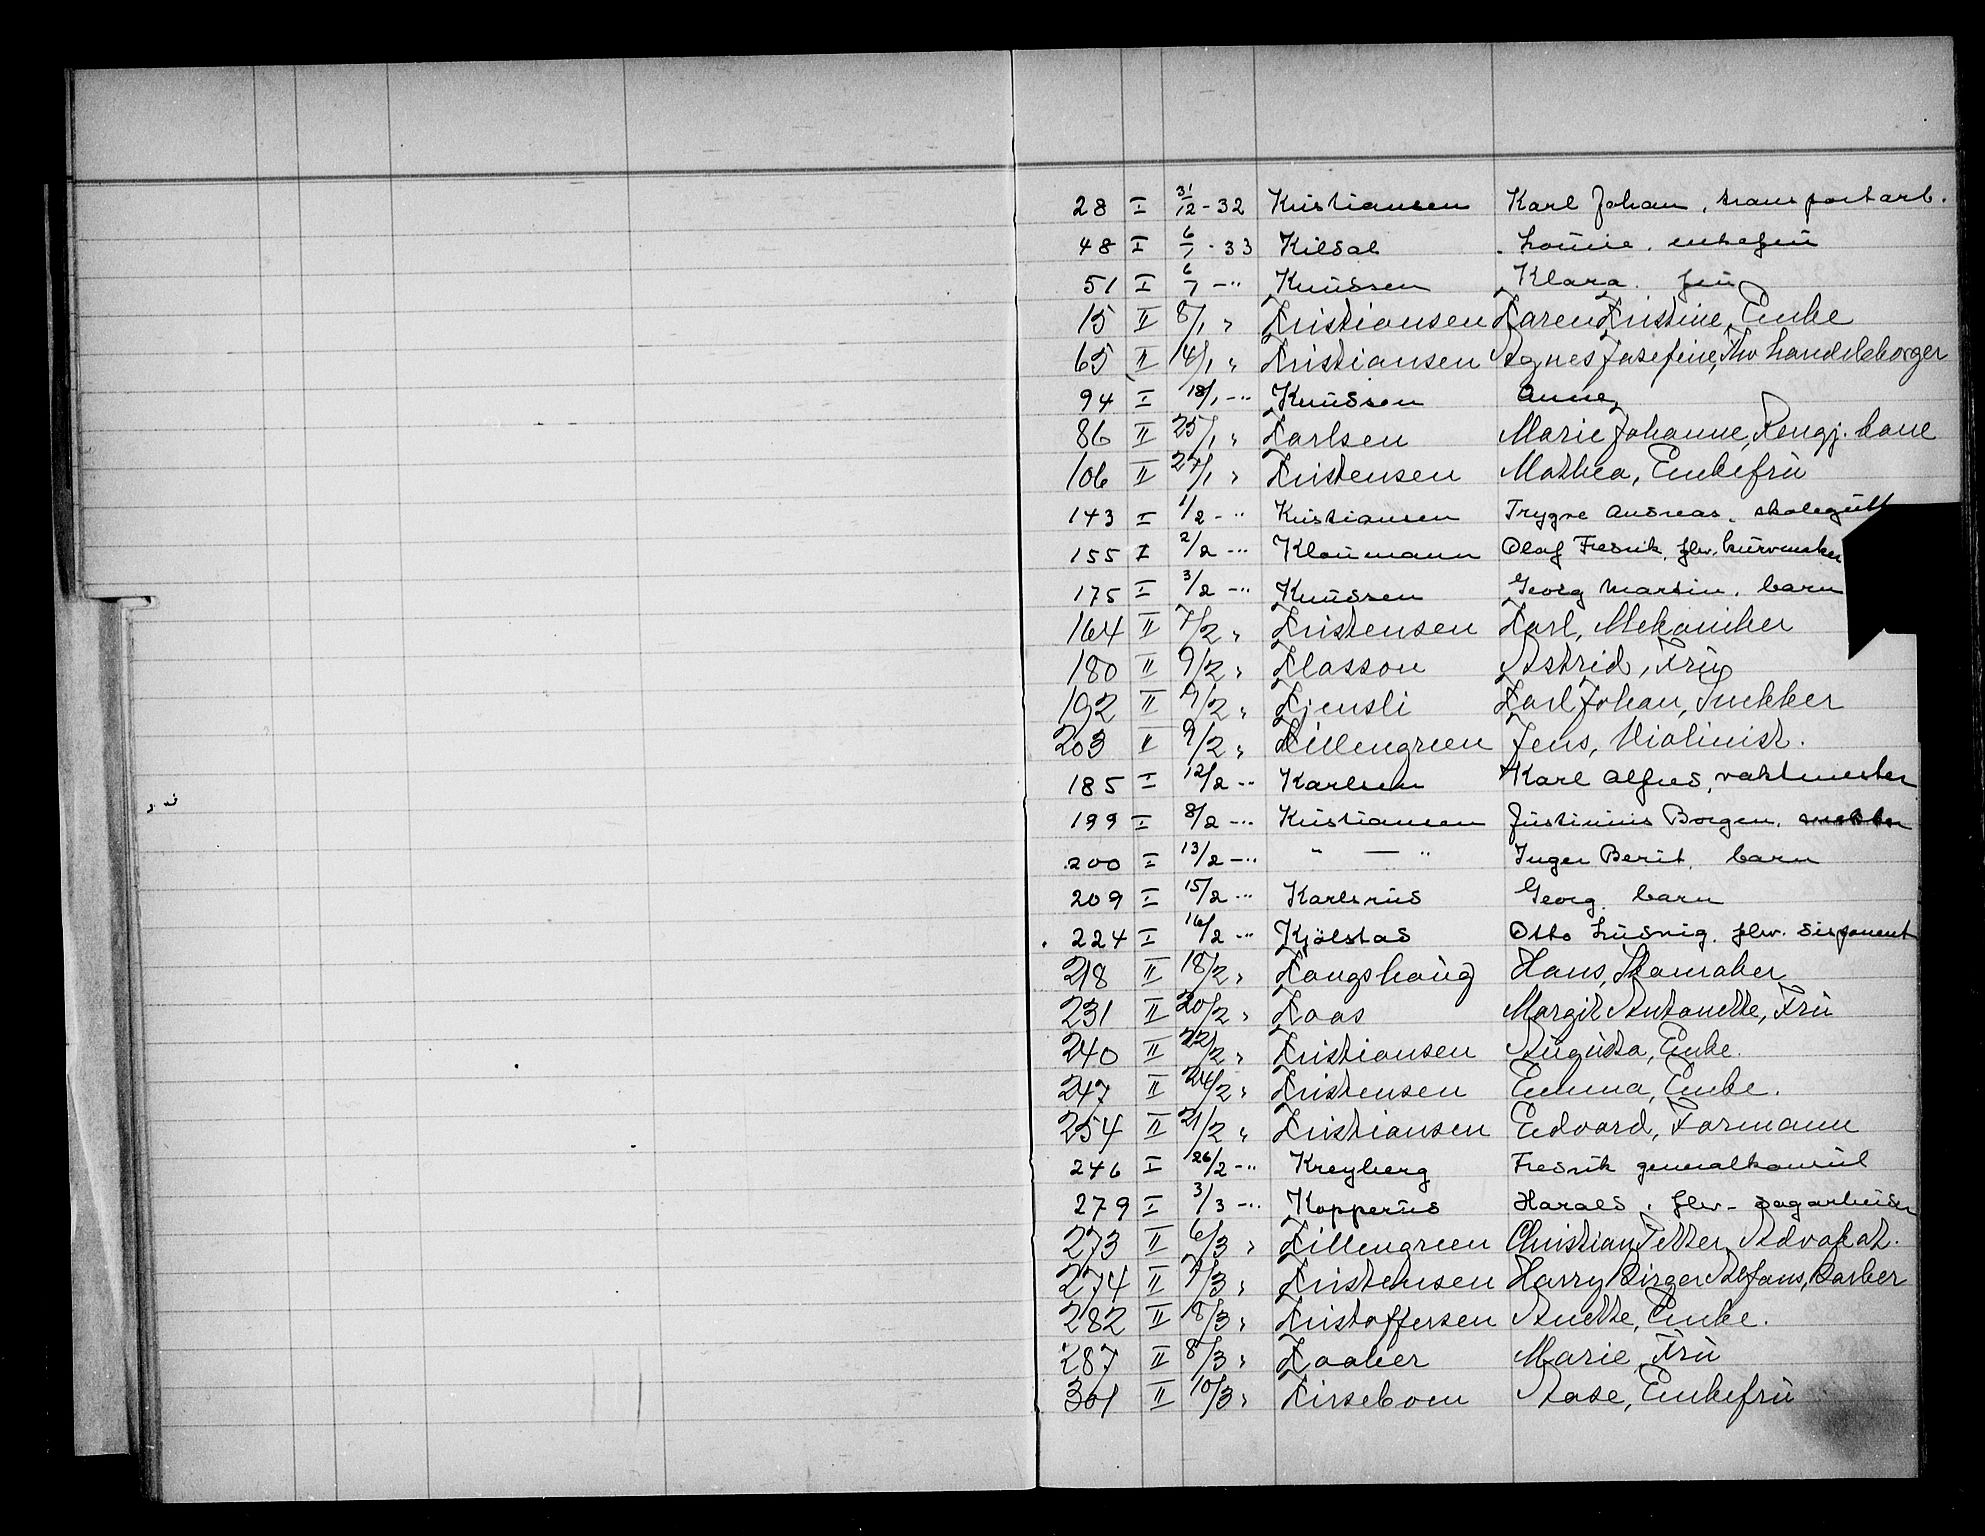 28 I 31/12 - 32 Kristiansen Karl Johan, transportarb.
48 I 6/1 - 33 Kildal Louise, enkefru
51 I 6/1 - " Knudsen Klara. fru
15 II 8/1 " Kristiansen Karen Kristine, Enke
65 II 14/1 " Kristiansen Agnes Josefine, fhv handelsborger
94 I 18/1 - " Knudsen Anne,
86 II 25/1 " Karlsen Marie Johanne, Rengj. kone
106 II 27/1 " Kristensen Mathea, Enkefru
143 I 1/2 - " Kristiansen Trygve Andreas, skolegutt
155 I 2/2 - " Klaumann Olaf Fredrik, fhv. kurvmaker
175 I 3/2 - " Knudsen Georg Martin, barn
164 II 7/2 " Kristensen Karl, Mekaniker
180 II 9/2 " Klasson Astrid, Fru
192 II 9/2 " Kjensli Karl Johan, Snekker
203 II 9/2 " Killengreen Jens, Violinist.
185 I 12/2 - " Karlsen Karl Alfred, vaktmester
199 I 8/2 - " Kristiansen Justinius Borgen,
200 I 13/2 - " " — " Inger Berit, barn
209 I 15/2 - " Karlsrud Georg. barn
224 I 16/2 - " Kjölstad Otto Ludvig, fhv. disponent
218 II 18/2 " Kaugshaug Hans, Skomaker
231 II 20/2 " Kaas Margit Antonette, Fru
240 II 22/2 " Kristiansen Augusta, Enke.
247 II 24/2 " Kristensen Emma, Enke.
254 II 21/2 " Kristiansen Edvard, Formann
246 I 26/2 - " Kreyberg Fredrik generalkonsul
279 I 3/3 - " Kopperud Harald, fhv. sagarbeider
273 II 6/3 " Killengreen Christian Petter, Advokat.
274 II 7/3 " Kristensen Harry Birger Alfons, Barber
282 II 8/3 " Kristoffersen Anette, Enke.
287 II 8/3 " Kaaber Marie, Fru
301 II 10/3 " Kirsebom Aase, Enkefru